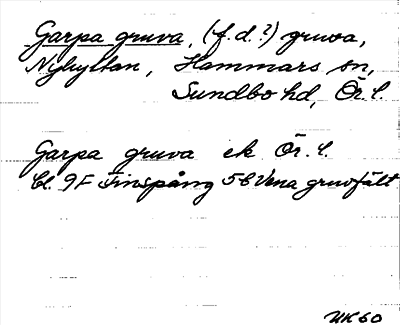 Garpa gruva, (f.d.?) gruva,
Nyhyttan, Hammars sn,
Sundbo hd, Ör. l.
Garpa gruva ek Ör. l.
Bl. 9F Finspång 5C Vena gruvfält
UK60